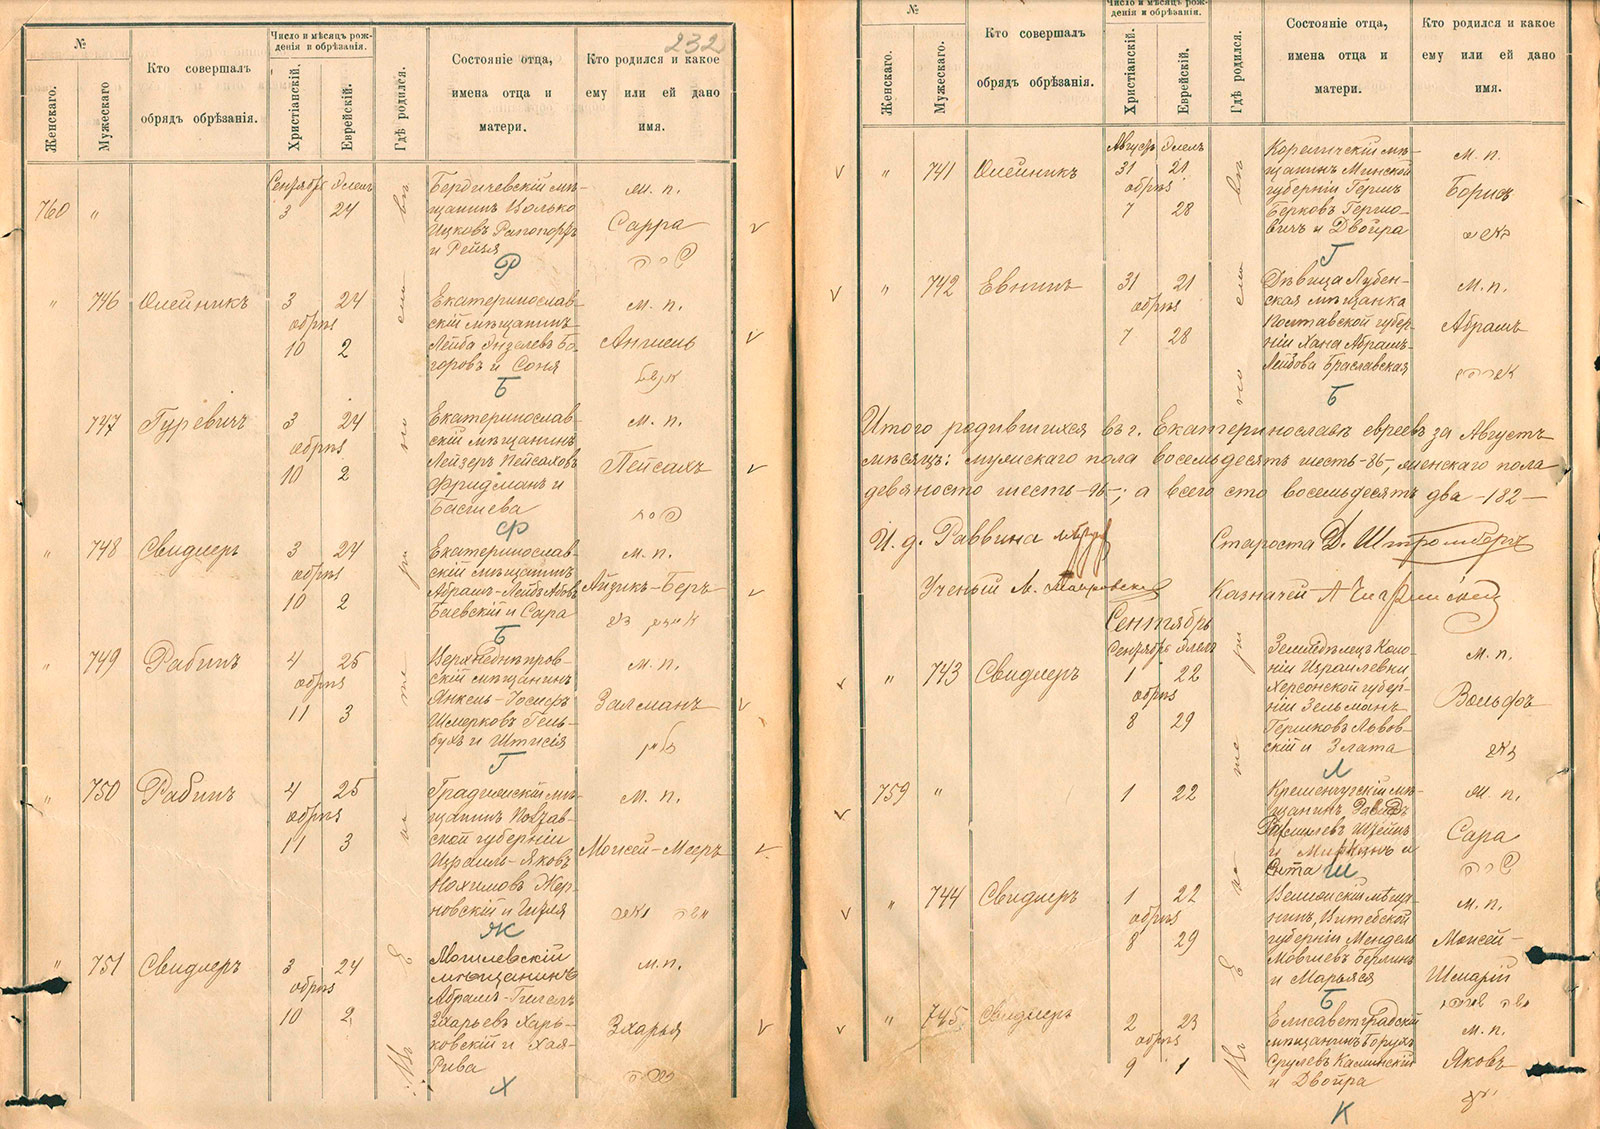 232
№
Женскаго.
Мужескаго
Кто совершалъ
обрядъ обрѣзанія.
Число и мѣсяцъ рож-
денія и обрѣзанія.
Христіанскій.
Еврейскій.
Гдѣ родился.
Состояніе отца,
имена отца и
матери.
Кто родился и какое
ему или ей дано
имя.
760 "
Сентябрь Элелъ
3 24
Бердичевскій мѣ-
щанинъ Волько
Ицковъ Рапопортъ
и Рейзя
Р
м. п.
Сарра
" 746 Олейникъ
3 24
обрѣз
10 2
Екатеринослав-
скій мѣщанинъ
Лейба Бо-
горовъ и Соня
Б
м. п.
Ангиель
747 Гуревичъ
3 24
обрѣз
10 2
Екатеринослав-
скій мѣщанинъ
Лейзеръ Пейсаховъ
Фридманъ и
Басшева
Ф
м. п.
Пейсахъ
פסח
" 748 Свидлеръ
3 24
обрѣз
10 2
Екатеринослав-
скій мѣщанинъ
Абрамъ-Лейбъ
Баевскій и Сара
Б
м. п.
Айзикъ-Беръ
" 749 Рабинъ
4 25
обрѣз
11 3
Верхнеднѣпров-
скій мѣщанинъ
Янкель-Іосифъ
Шмерковъ Гель-
бухъ и
Г
м. п.
Залманъ
זלמן
" 750 Рабинъ
4 25
обрѣз
11 3
Градижскій мѣ-
щанинъ Полтав-
ской губерніи
Израиль-Яковъ
Нохимовъ Жер-
новскій и
Ж
м. п.
Мойсей-Мееръ
" 751 Свидлеръ
3 24
обрѣз
10 2
Могилевскій
мѣщанинъ
Абрамъ-Гилель
Зхарьевъ Харь-
ковскій и Хая-
Рива
Х
м. п.
Зхарья
№
Женскаго.
Мужескаго.
Кто совершалъ
обрядъ обрѣзанія.
Число и мѣсяцъ рож-
денія и обрѣзанія.
Христіанскій.
Еврейскій.
Гдѣ родился.
Состояніе отца,
имена отца и
матери.
Кто родился и какое
ему или ей дано
имя.
" 741 Олейникъ
Августъ Элелъ
31 21
обрѣз
7 28
Кореличскій мѣ-
щанинъ Минской
губерніи Гершъ
Берковъ Гершо-
вичъ и Двойра
Г
м. п.
Борисъ
" 742 Евнинъ
31 21
обрѣз
7 28
Дѣвица Лубен-
ская мѣщанка
Полтавской губер-
ніи Хана Абрамъ-
Лейбова Браславская
Б
м. п.
Абрамъ
Итого родившихся въ г. Екатеринославѣ евреевъ за Августъ
мѣсяцъ: мужскаго пола восемьдесятъ шесть -86-, женскаго пола
девяносто шесть -96-; а всего сто восемьдесятъ два -182-
И. д. Раввина
Староста Д. Штромберъ
Ученый
Казначей
Сентябрь
Сентябрь Элелъ
" 743 Свидлеръ
1 22
обрѣз
8 29
Земледѣлецъ Коло-
ніи Израилевки
Херсонской губер-
ніи Зельманъ
Гершковъ Львов-
скій и Злата
Л
м. п.
Вольфъ
זאב
759 "
1 22
Кременчугскій мѣ-
щанинъ
Ш
м. п.
Сара
שרה
" 744 Свидлеръ
1 22
обрѣз
8 29
Велижскій мѣща-
нинъ, Витебской
губерніи Мендель
Мовшевъ Берлинъ
и Марьяся
Б
м. п.
Мойсей-
Шмарій
" 745 Свидлеръ
2 23
обрѣз
9 1
Елисаветградскій
мѣщанинъ Борухъ
Срулевъ Калинскій
и Двойра
К
м. п.
Яковъ